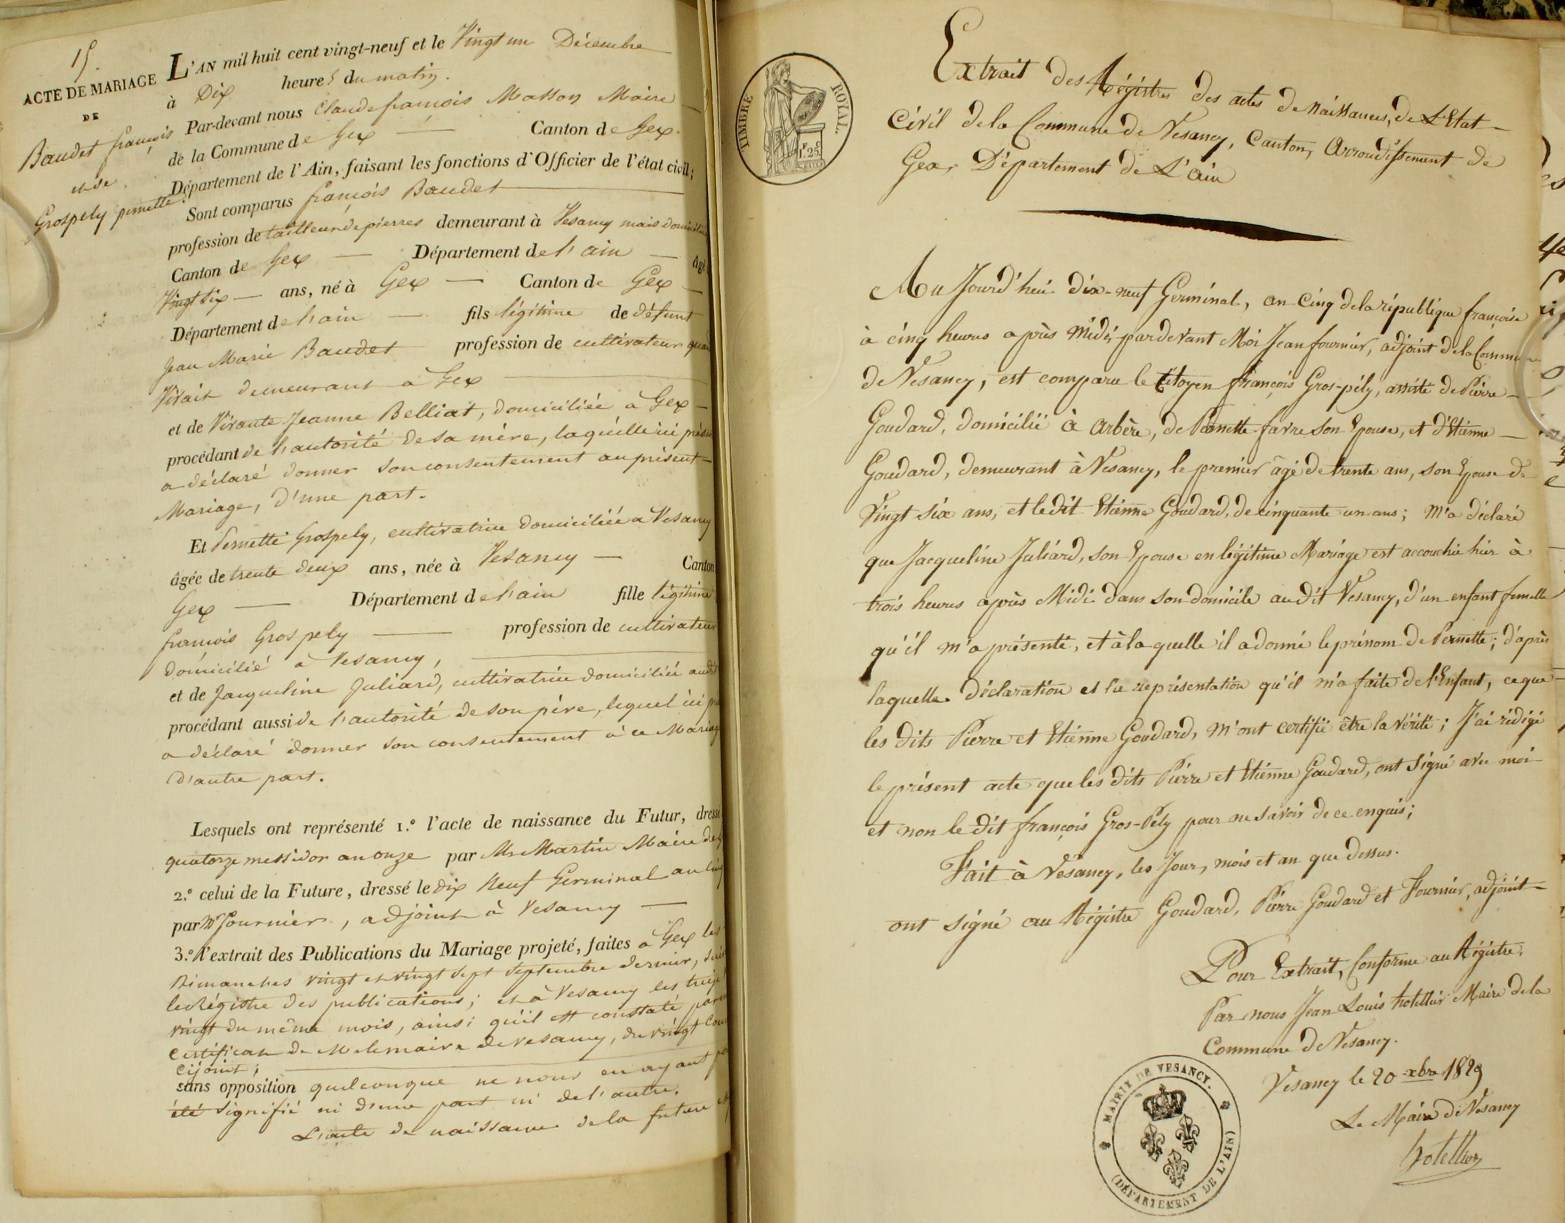 15.
ACTE DE MARIAGE
DE
Baudet françois
et de
Grospely pernette
L'AN mil huit cent vingt-neuf et le Vingt un Décembre
à Dix heures du matin.
Par-devant nous Claude françois Masson Maire
de la Commune de Gex Canton de Gex.
Département de l'Ain, faisant les fonctions d'Officier de l'état civil;
Sont comparus françois Baudet
profession de tailleur de pierres demeurant à Vesancy mais
Canton de Gex Département de l'ain
Vingt six ans, né à Gex Canton de Gex
Département de l'ain fils légitime de défunt
Jean Marie Baudet profession de cultivateur
Vivait demeurant à Gex
et de Vivante Jeanne Belliat, domiciliée à Gex
procédant de l'autorité de sa mère, laquelle ici
a déclaré donner son consentement au présent
Mariage, d'une part.
Et Pernette Grospely, cultivatrice domiciliée à Vesancy
âgée de trente deux ans, née à Vesancy Canton
Gex Département de l'ain fille légitime
françois Grospely profession de cultivateur
domicilié à Vesancy,
et de Jacqueline Juliard, cultivatrice domiciliée
procédant aussi de l'autorité de son père, lequel ici
a déclaré donner son consentement à ce Mariage
D'autre part.
Lesquels ont représenté 1.° l'acte de naissance du Futur, dressé
quatorze messidor an onze par Mr Martin Maire de
2.° celui de la Future, dressé le dix Neuf Germinal an
par Mr Fournier, adjoint à Vesancy
3.° l'extrait des Publications du Mariage projeté, faites à Gex les
Dimanches vingt et vingt sept septembre dernier,
le Régistre des publications; et à Vesancy les
vingt du même mois, ainsi qu'il est constaté par
certificat de M le maire de Vesancy, du vingt
cijoint;
sans opposition quelconque ne nous en ayant
été signifié ni d'une part ni de l'autre.
L'acte de naissance de la future
TIMBRE ROYAL.
1.25
Extrait des Régistres des actes de Naissances, de L'Etat
Civil de la Commune de Vesancy, Canton, Arrondissement de
Gex, Département de L'ain
Au Jourd'hui dix-neuf Germinal, an Cinq de la république françoise
à cinq heures après midi, pardevant Moi Jean fournier, adjoint de la Commune
de Vesancy, est comparu le Citoyen françois Gros-pely, assisté de Pierre
Goudard, domicilié à Arbère, de Pernette favre son Epouse, et d'Etienne
Goudard, demeurant à Vesancy, le premier âgé de trente ans, son Epouse de
Vingt six ans, et le dit Etienne Goudard, de cinquante un ans; m'a déclaré
que Jacqueline Juliard, son Epouse en légitime Mariage est accouchée hier à
trois heures après Midi dans son domicile au dit Vesancy, d'un enfant femelle
qu'il m'a présenté, et à la quelle il a donné le prénom de Pernette; d'après
laquelle déclaration et la représentation qu'il m'a faite de l'Enfant, ce que
les dits Pierre et Etienne Goudard, m'ont certifié être la vérité; J'ai rédigé
le présent acte que les dits Pierre et Etienne Goudard, ont signé avec moi
et non le dit françois Gros-Pely pour ne savoir de ce enquis;
Fait à Vesancy, les Jour, mois et an que dessus.
ont signé au Régistre Goudard, Pierre Goudard et Fournier, adjoint
Pour Extrait, Conforme au Régistre,
Par nous Jean Louis hotellier Maire de la
Commune de Vesancy.
Vesancy le 20 xbre 1829
Le Maire de Vesancy
hotellier
MAIRIE DE VESANCY.
(DÉPARTEMENT DE L'AIN)